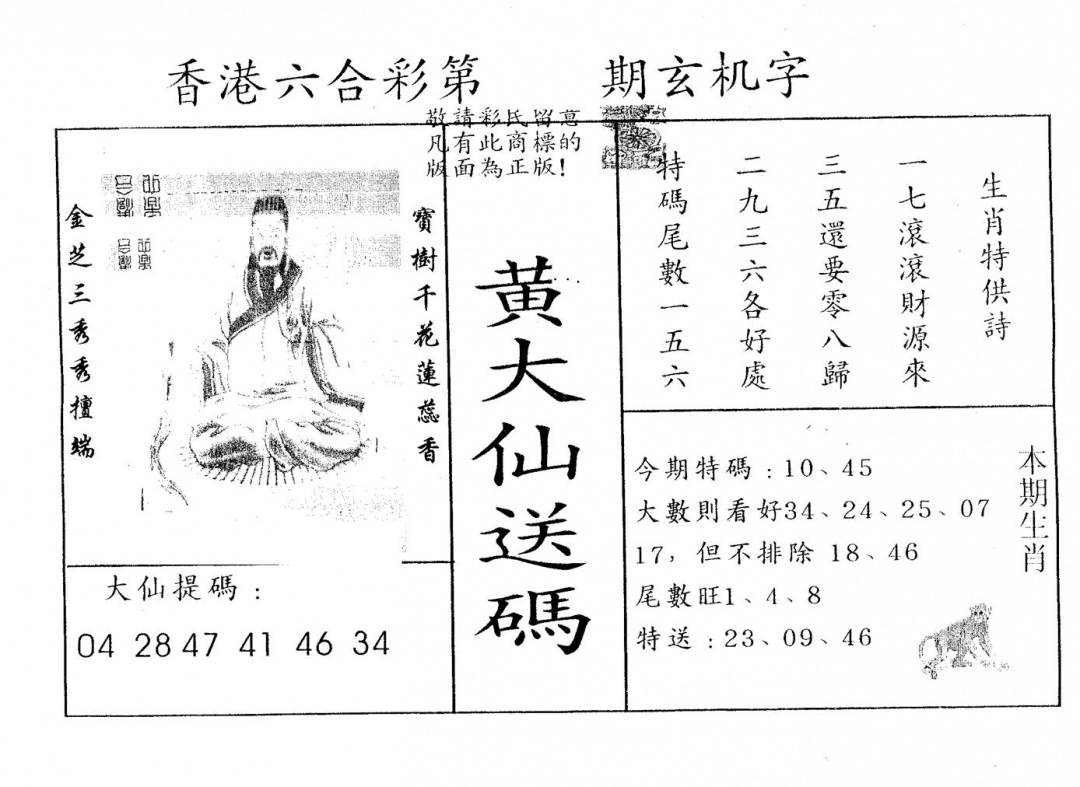 香港六合彩第 期玄机字
敬請彩民留意
凡有此商標的
版面為正版！
寶樹千花蓮蕊香
金芝三秀秀擅端
大仙提碼：
04 28 47 41 46 34
黃大仙送碼
生肖特供詩
一七滾滾財源來
三五還要零八歸
二九三六各好處
特碼尾數一五六
本期生肖
今期特碼：10、45
大數則看好34、24、25、07
17，但不排除 18、46
尾數旺1、4、8
特送：23、09、46